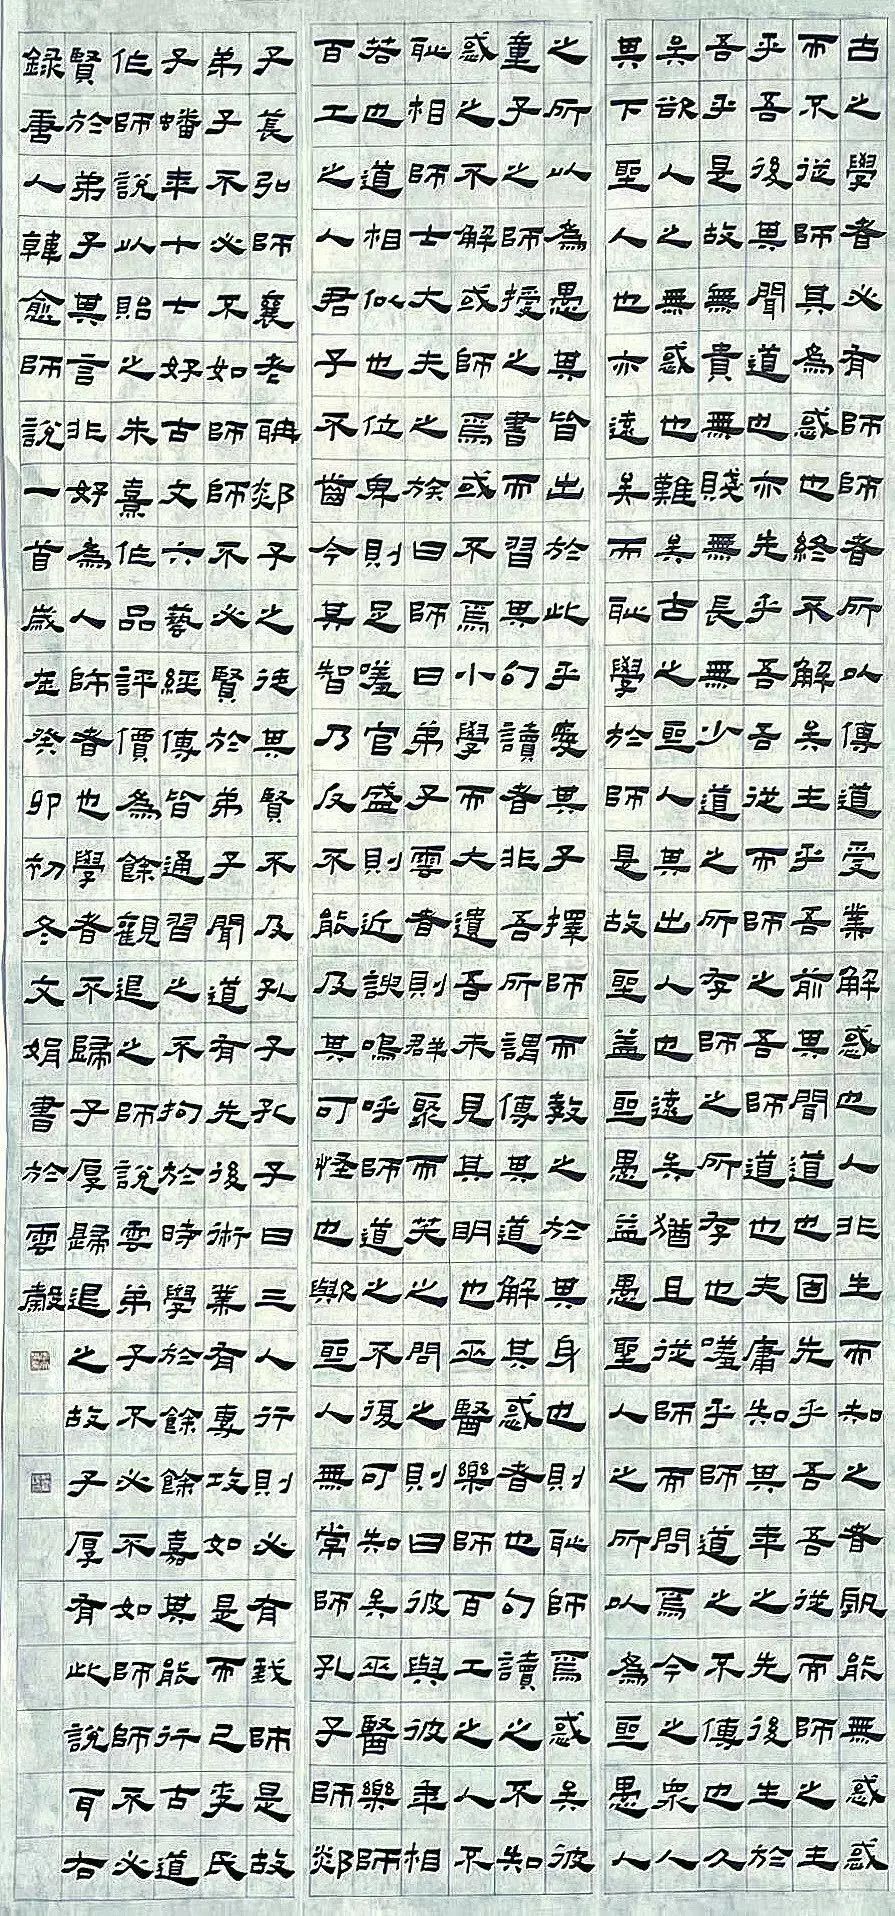 古之學者必有師師者所以傳道受業解惑也人非生而知之者孰能無惑惑
而不從師其為惑也終不解矣生乎吾前其聞道也固先乎吾吾從而師之生
乎吾後其聞道也亦先乎吾吾從而師之吾師道也夫庸知其年之先後生於
吾乎是故無貴無賤無長無少道之所存師之所存也嗟乎師道之不傳也久
矣欲人之無惑也難矣古之聖人其出人也遠矣猶且從師而問焉今之眾人
其下聖人也亦遠矣而恥學於師是故聖益聖愚益愚聖人之所以為聖愚人
之所以為愚其皆出於此乎愛其子擇師而教之於其身也則恥師焉惑矣彼
童子之師授之書而習其句讀者非吾所謂傳其道解其惑者也句讀之不知
惑之不解或師焉或不焉小學而大遺吾未見其明也巫醫樂師百工之人不
恥相師士大夫之族曰師曰弟子雲者則群聚而笑之問之則曰彼與彼年相
若也道相似也位卑則足嗟官盛則近諛嗚呼師道之不復可知矣巫醫樂師
百工之人君子不齒今其智乃反不能及其可怪也歟聖人無常師孔子師郯
子萇弘師襄老聃郯子之徒其賢不及孔子孔子曰三人行則必有我師是故
弟子不必不如師師不必賢於弟子聞道有先後術業有專攻如是而已李氏
子蟠年十七好古文六藝經傳皆通習之不拘於時學於餘餘嘉其能行古道
作師說以貽之朱熹作品評價為餘觀退之師說雲弟子不必不如師師不必
賢於弟子其言非好為人師者也學者不歸子厚歸退之故子厚有此說耳右
録唐人韓愈師說一首歲在癸卯初冬文娟書於雲